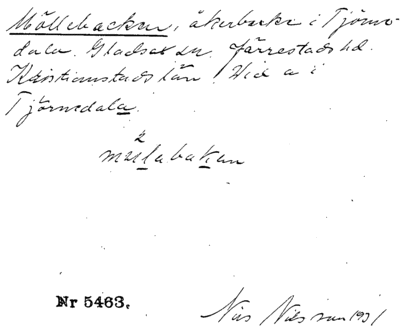 Möllebacken, åkerbacke i Tjörne-
dala. Gladsax sn. Järrestads hd.
Kristianstads län. Vid a i
Tjörnedala.
2
Nr 5463.
Nils Nilsson 1931